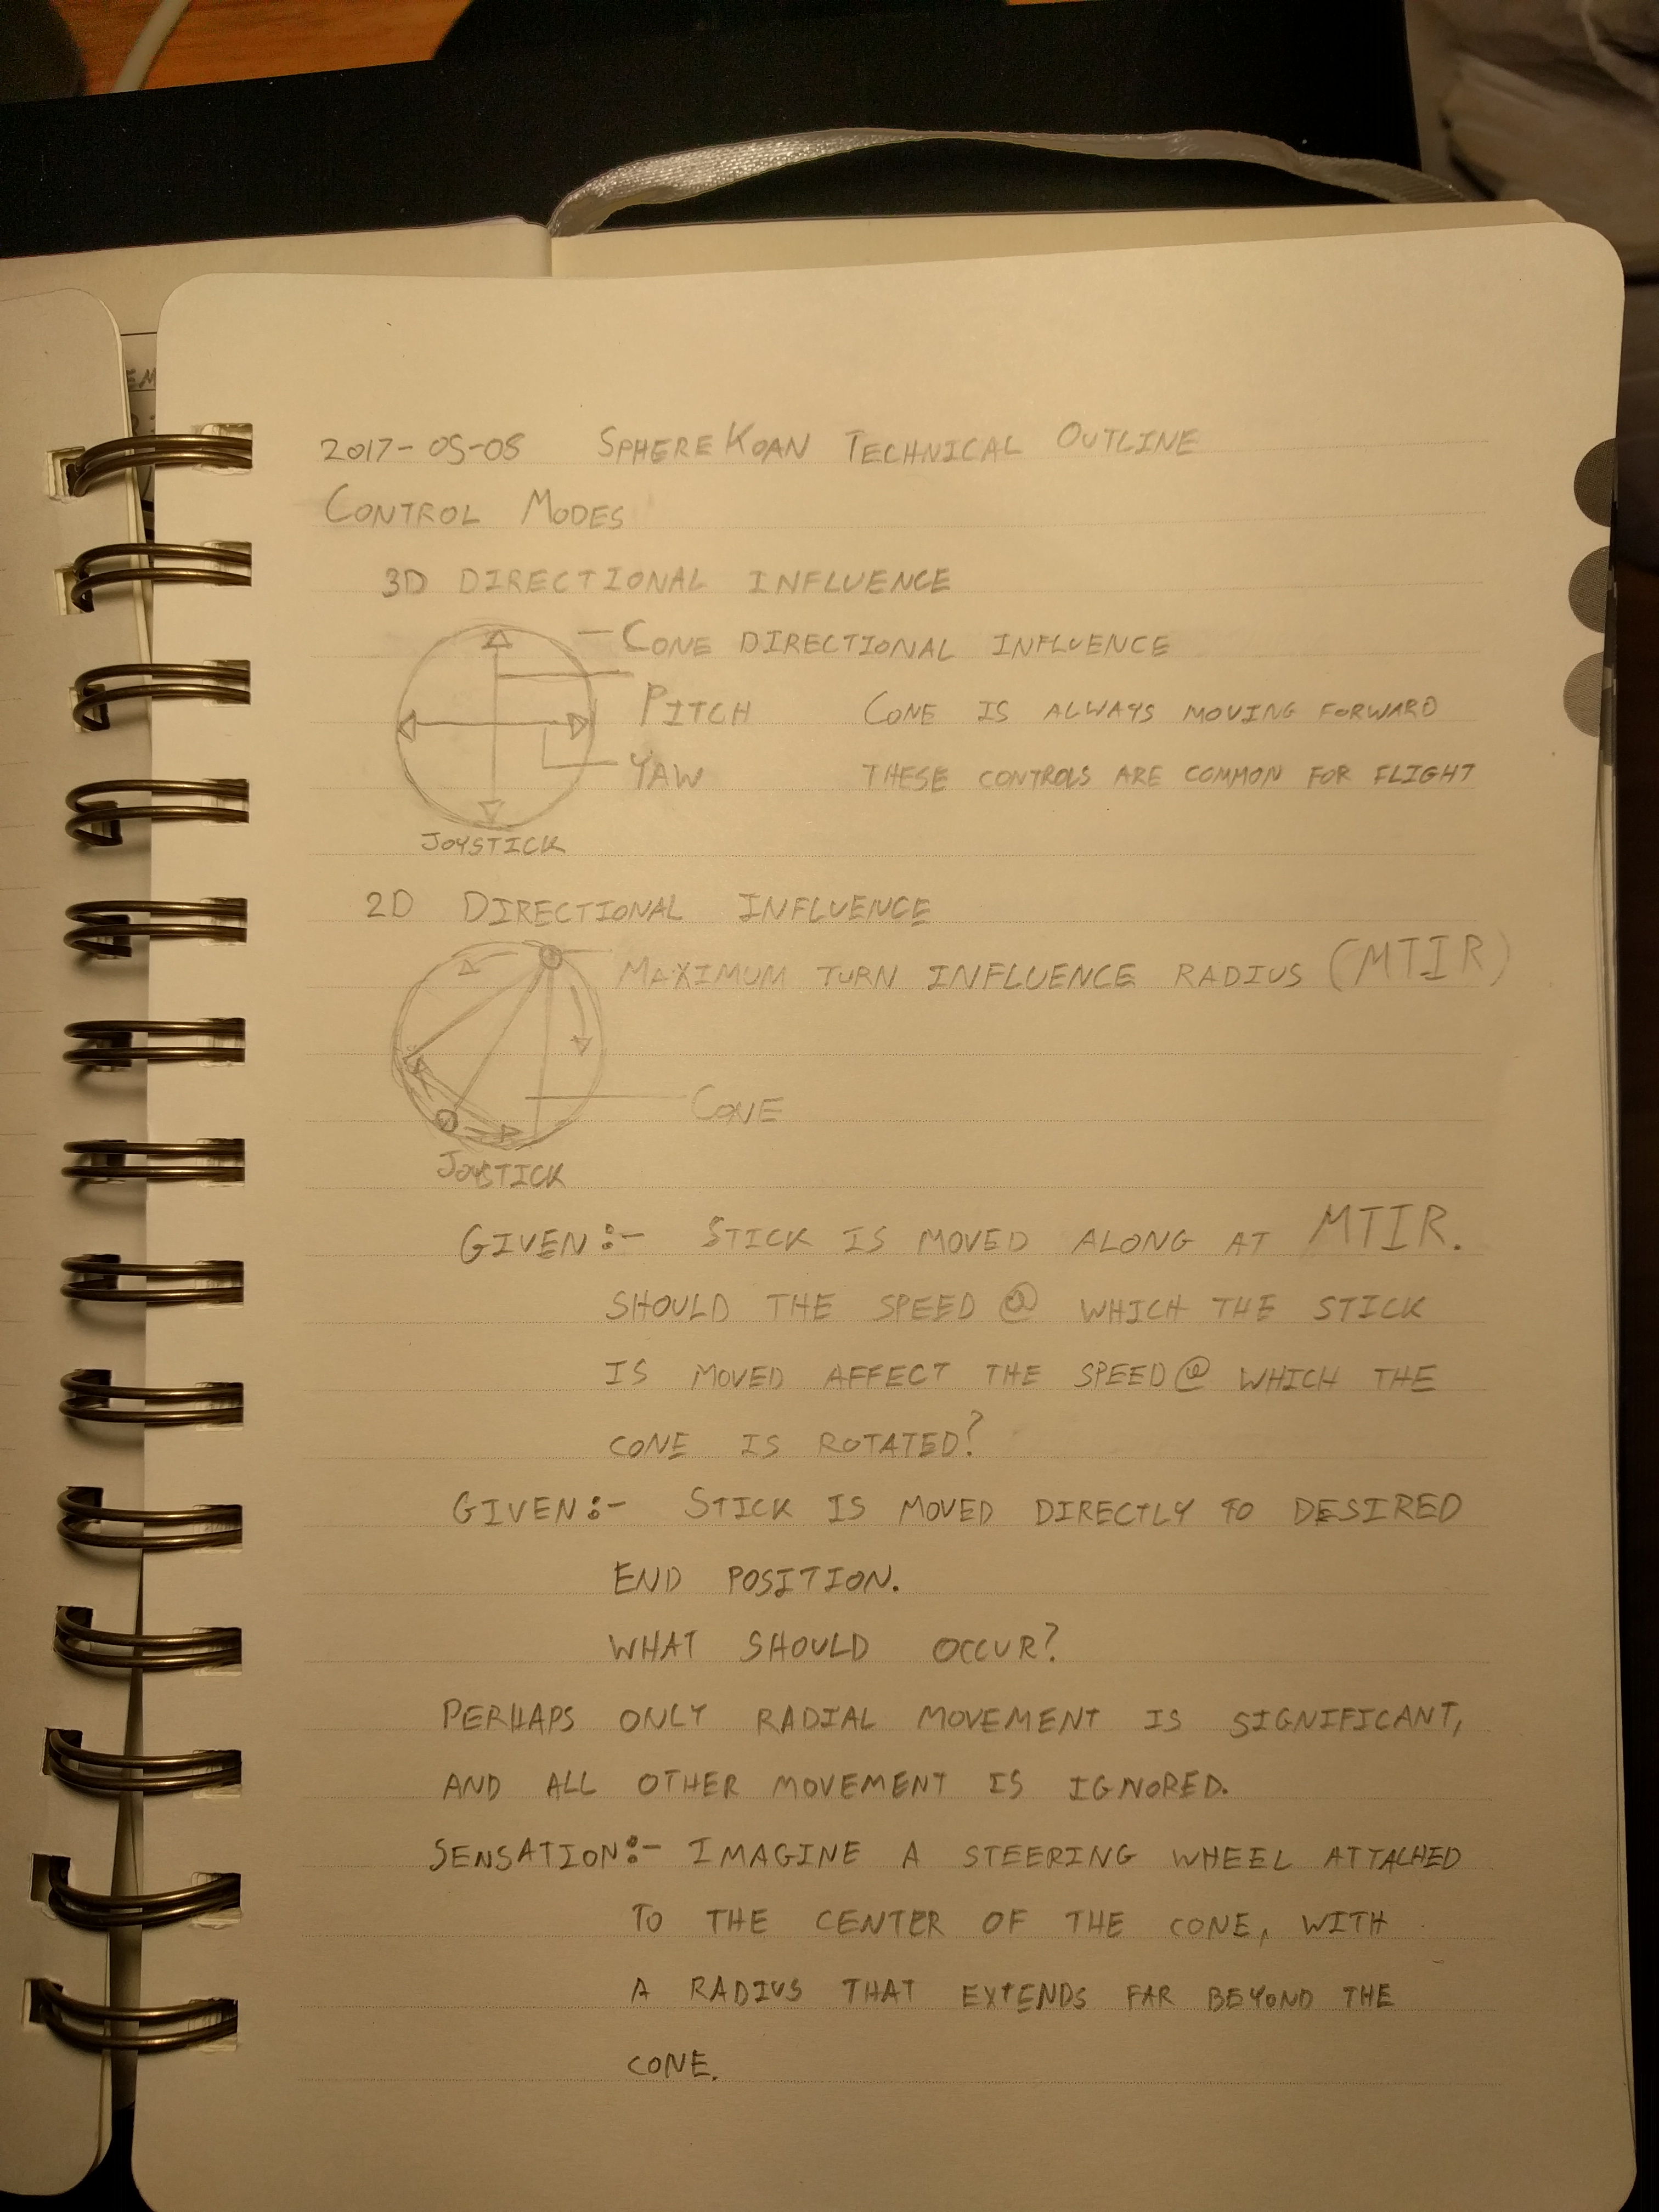 2017-05-08 SPHEREKOAN TECHNICAL OUTLINE
CONTROL MODES
3D DIRECTIONAL INFLUENCE
CONE DIRECTIONAL INFLUENCE
PITCH CONE IS ALWAYS MOVING FORWARD
YAW THESE CONTROLS ARE COMMON FOR FLIGHT
JOYSTICK
2D DIRECTIONAL INFLUENCE
MAXIMUM TURN INFLUENCE RADIUS (MTIR)
CONE
JOYSTICK
GIVEN:- STICK IS MOVED ALONG AT MTIR.
SHOULD THE SPEED @ WHICH THE STICK
IS MOVED AFFECT THE SPEED @ WHICH THE
CONE IS ROTATED?
GIVEN:- STICK IS MOVED DIRECTLY TO DESIRED
END POSITION.
WHAT SHOULD OCCUR?
PERHAPS ONLY RADIAL MOVEMENT IS SIGNIFICANT,
AND ALL OTHER MOVEMENT IS IGNORED.
SENSATION:- IMAGINE A STEERING WHEEL ATTACHED
TO THE CENTER OF THE CONE, WITH
A RADIUS THAT EXTENDS FAR BEYOND THE
CONE.